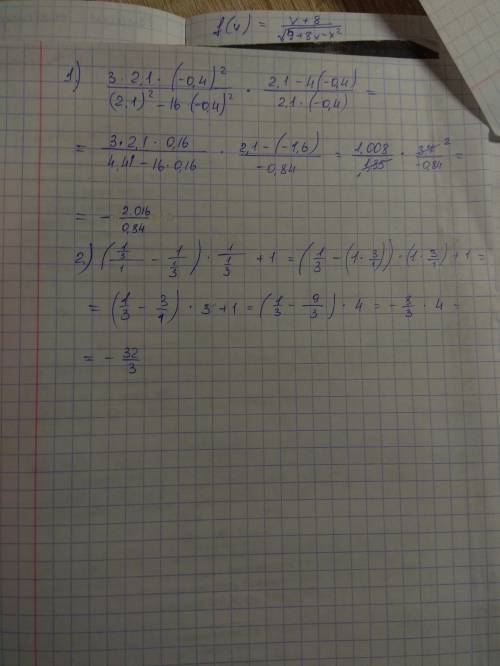 f(x) = (x+8)/√(9+8x-x²)
1) (3·2,1·(-0,4)²)/((2,1)² - 16·(-0,4)²) · (2,1-4(-0,4))/(2,1·(-0,4)) =
= (3·2,1·0,16)/(4,41-16·0,16) · (2,1-(-1,6))/(-0,84) = 1,008/1,85 · 3,7²/(-0,84) =
= - 2.016/0,84
2.) ((1/3)/1 - 1/(1/3)) · 1/(1/3) + 1 = (1/3 - (1·3/1)) · (1·3/1) + 1 =
= (1/3 - 3/1) · 3 + 1 = (1/3 - 9/3) · 4 = - 8/3 · 4 =
= - 32/3